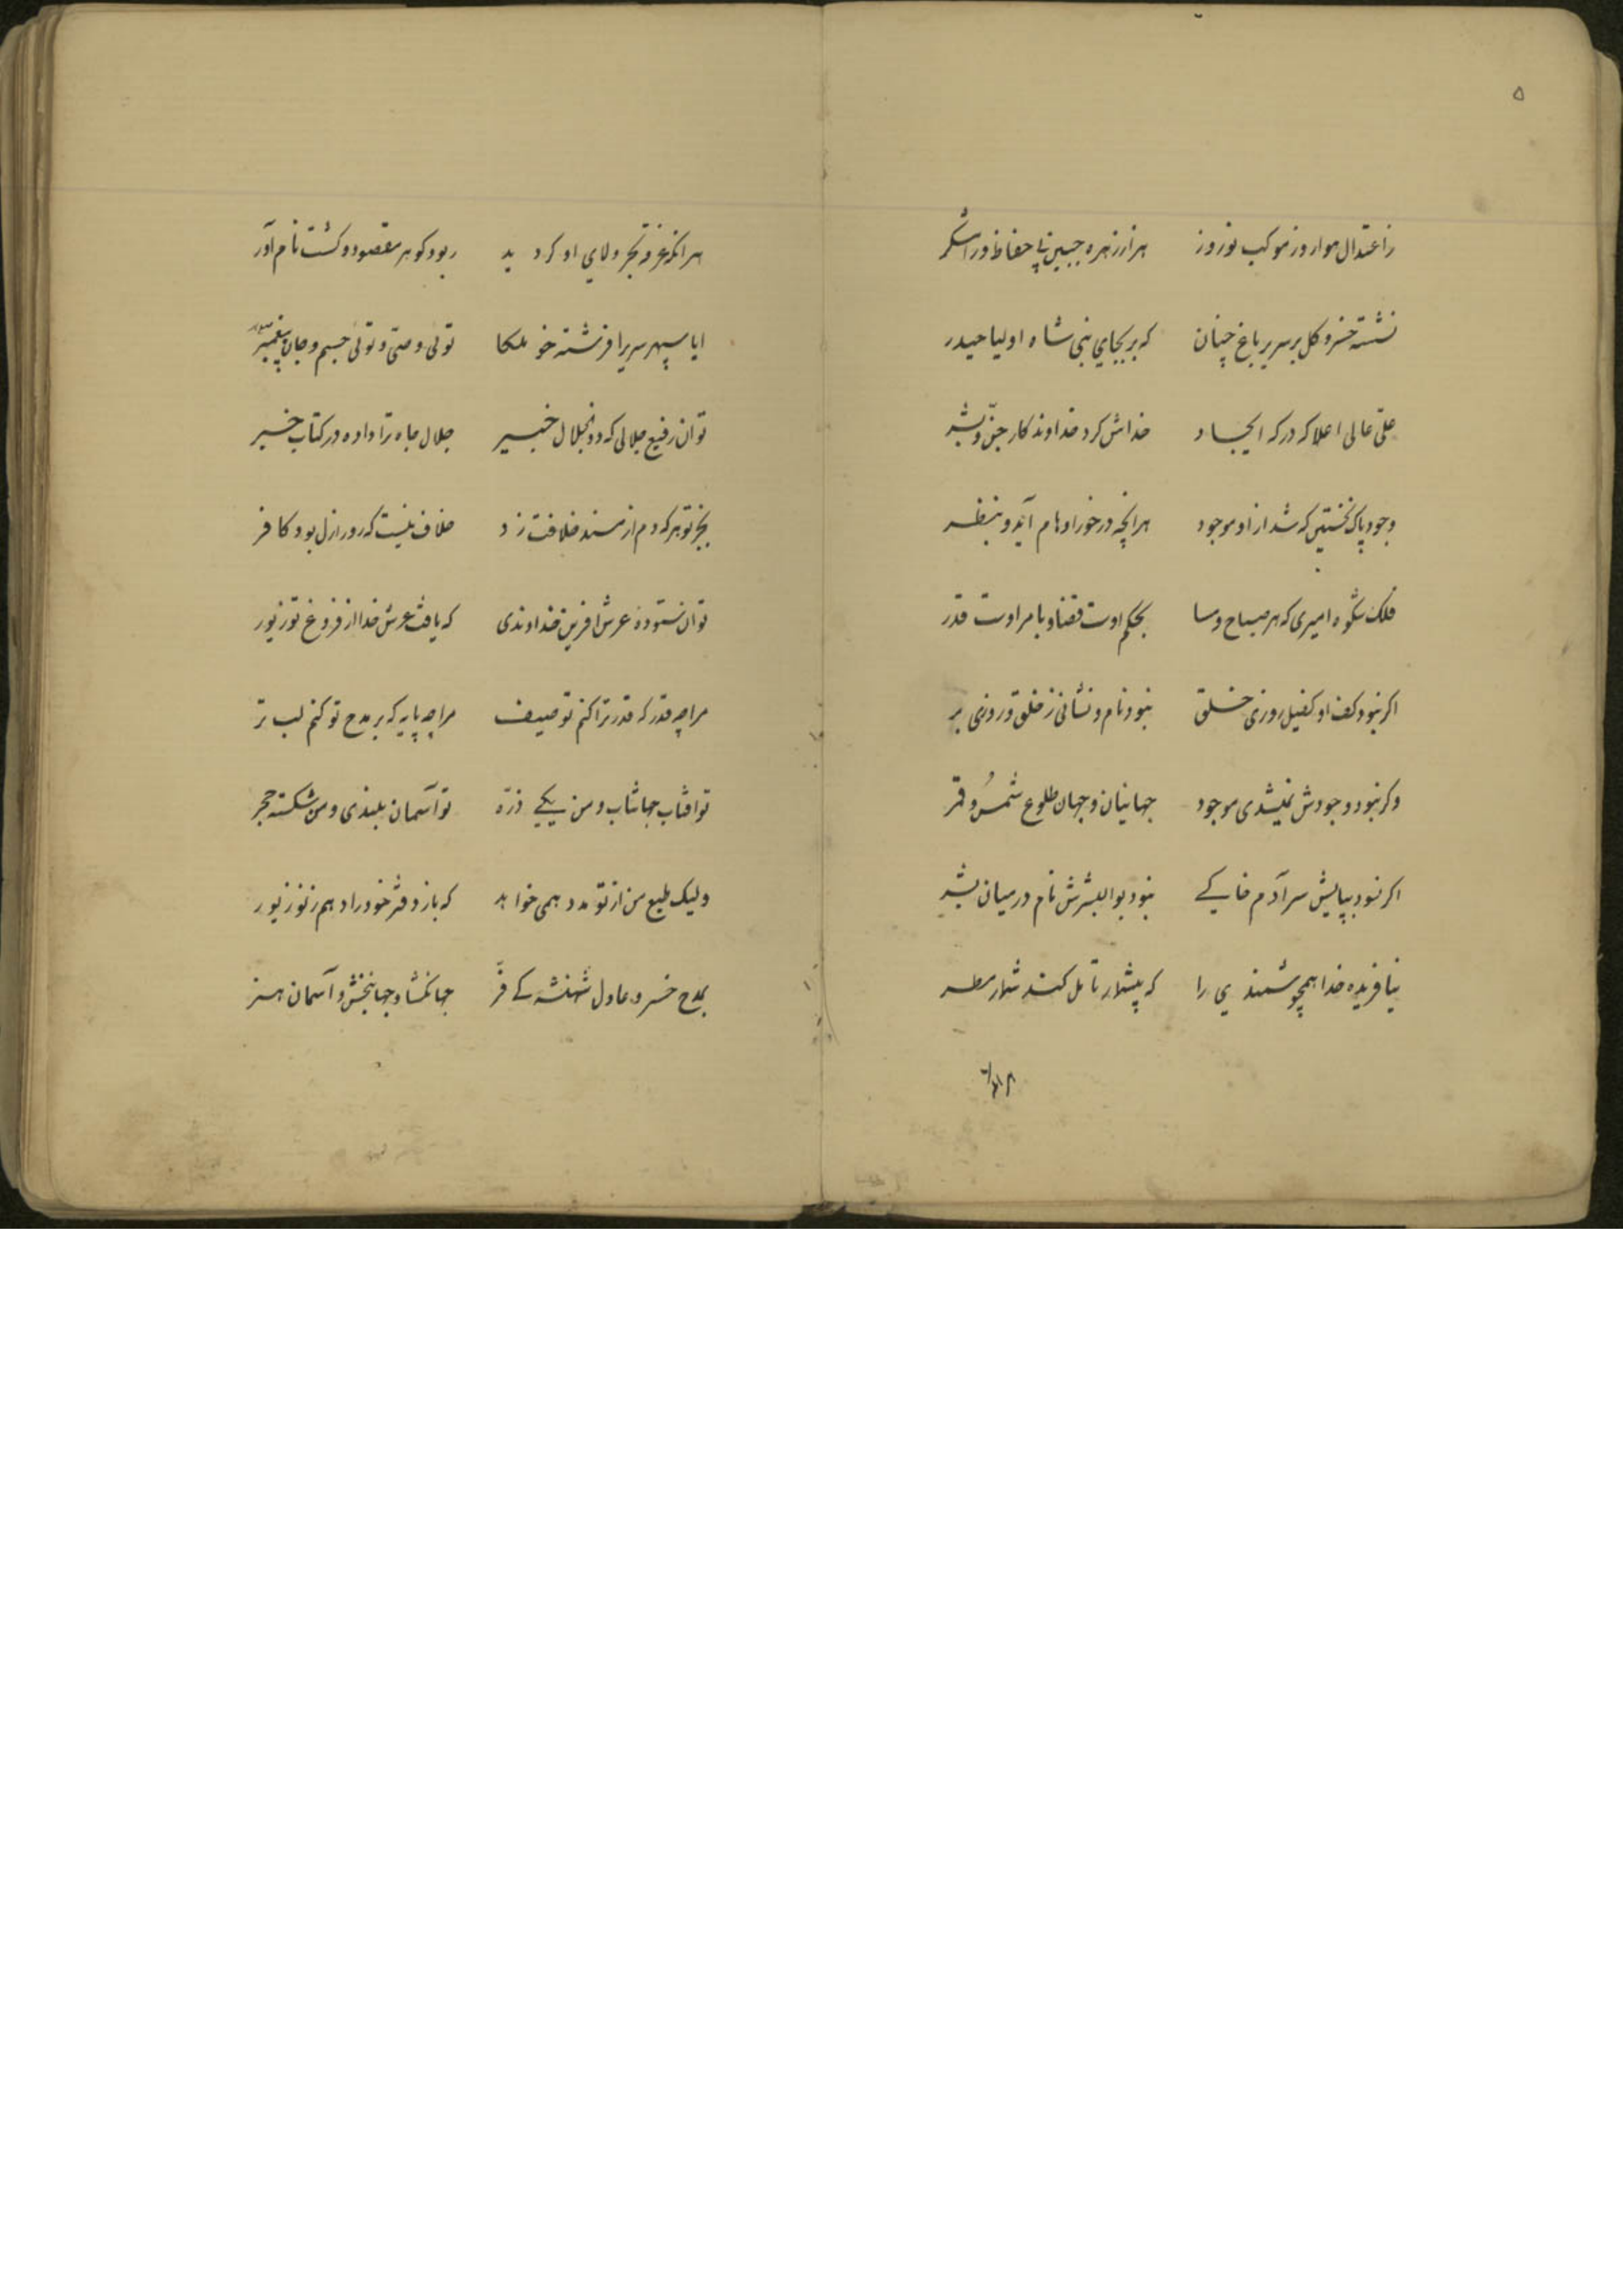 ۵
زاعتدال هوا روز موکب نوروز هزار زهره جبین
نشسته خسرو کل بر سریر باغ چنان که بر بجای نبی شاه اولیا حیدر
علی عالی اعلا که درکه ایجاد خداش کرد خداوند کار جن و بشر
وجود پاک نخستین که شد از او موجود هرانچه در خور اوهام آید و بنظر
فلک شکوه امیری که هر صباح و مسا بحکم اوست قضا و بامر اوست قدر
اکر نبود کف او کفیل روزی خلق نبود نام و نشانی ز خلق و روزی بر
وکر نبود وجودش نمیشدی موجود جهانیان و جهان طلوع شمس و قمر
اکر نسود بپایش سر آدم خاکے نبود بوالبشرش نام در میان بشر
نیافریده خدا همچو سمندي را که پیشمار تامل کند شمار مطر
هرانکه غرقه بحر ولاي او کردید ربود کوهر مقصود و کشت نام آور
ایا سپهر سریرا فرشته خو ملکا توئی وصی و توئی جسم و جان پیغمبر
توان رفیع جلالی که ذوالجلال خبیر جلال جاه ترا داده در کتاب خبر
بجز تو هر که دم از مسند خلافت زد خلاف نیست که روز ازل بود کافر
توان ستوده عرش افرین خداوندی که یافت عرش خدا از فروغ تو زیور
مراچه قدر که قدر ترا کنم توصیف مراچه پایه که بر مدح تو کنم لب تر
تو افتاب جهانتاب و من یکے ذره تو آسمان بلندی و من شکسته حجر
ولیک طبع من از تو مدد همی خواهد که باز دفتر خود را دهم ز نو زیور
بمدح خسرو عادل شهنشه کے فر جهانکشا و جهانبخش و آسمان هنر